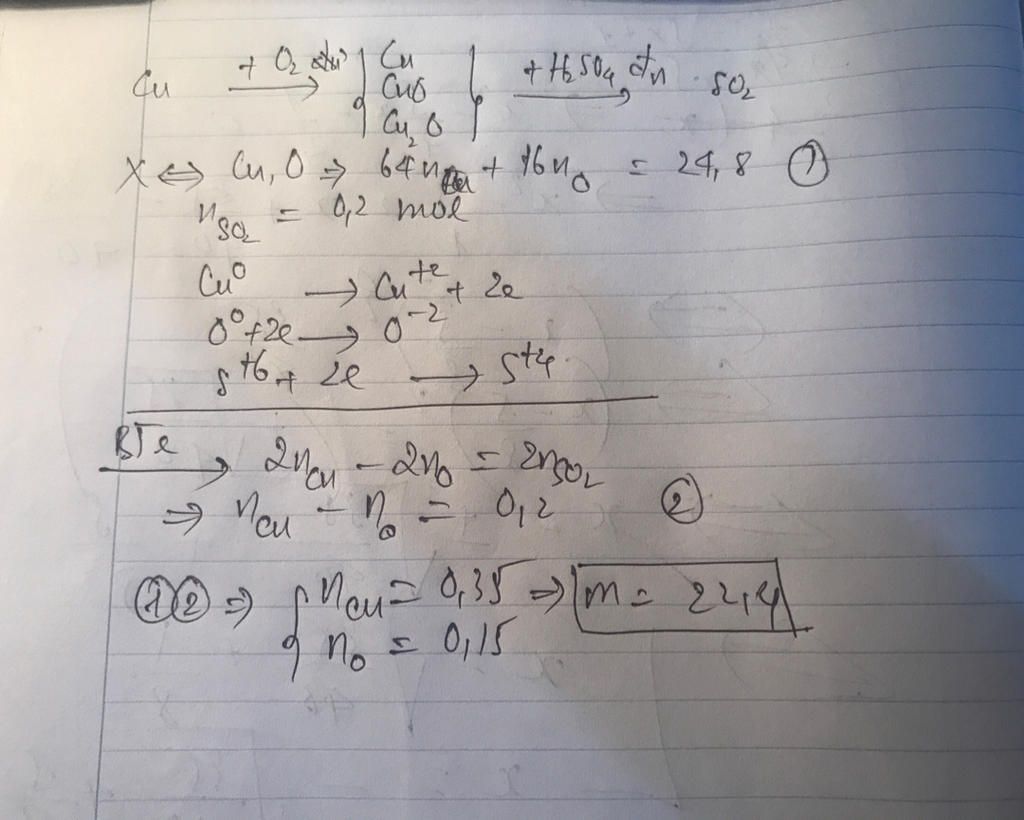 Cu + O₂ → { Cu CuO Cu₂O } + H₂SO₄ đ,n → SO₂
X ⇔ Cu, O ⇒ 64n_Cu + 16n_O = 24,8 ①
n_SO₂ = 0,2 mol
Cu⁰ → Cu⁺² + 2e
O⁰ + 2e → O⁻²
S⁺⁶ + 2e → S⁺⁴
BTe → 2n_Cu − 2n_O = 2n_SO₂
⇒ n_Cu − n_O = 0,2 ②
①② ⇒ { n_Cu = 0,35 ⇒ m = 22,4
n_O = 0,15